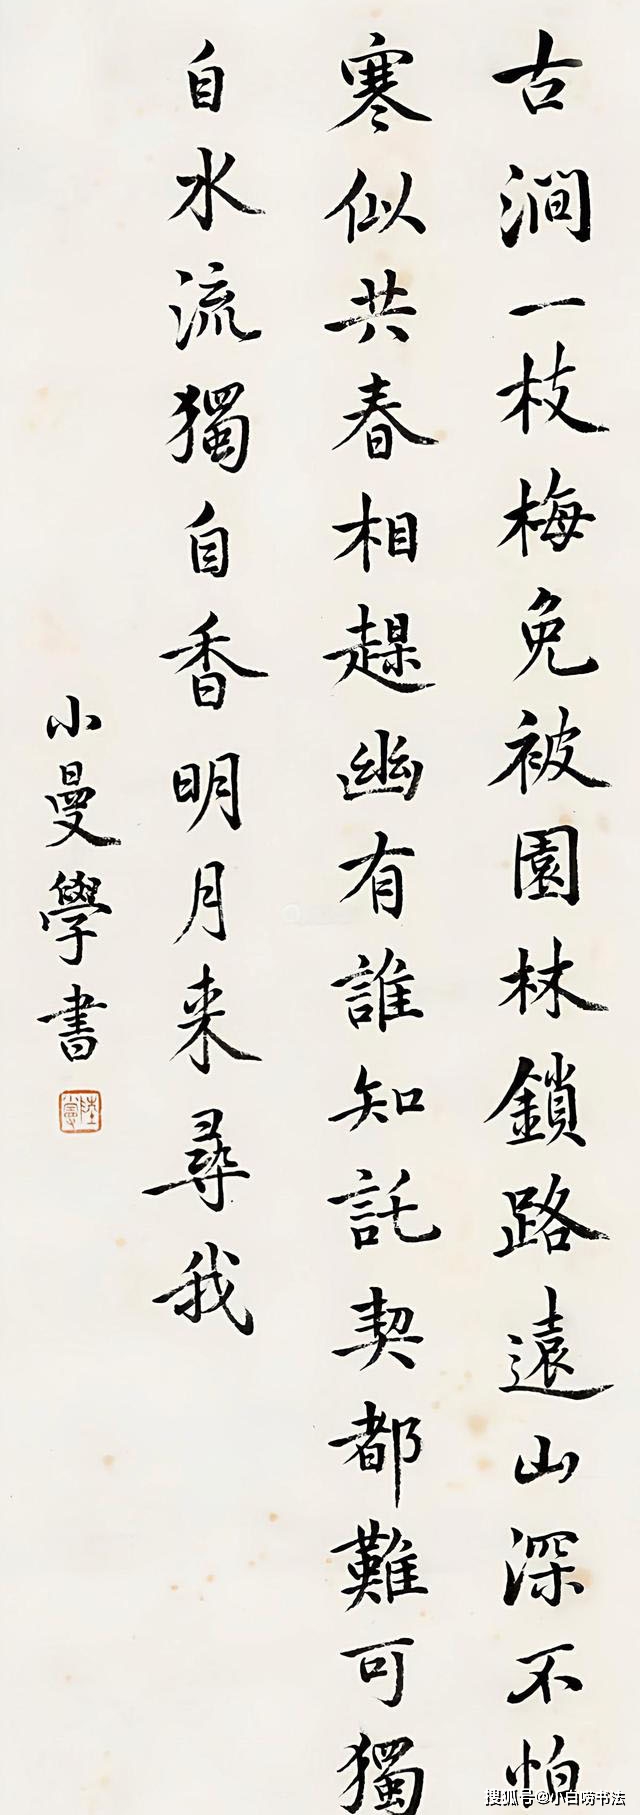 古澗一枝梅免被園林鎖路遠山深不怕
寒似共春相幽有誰知託契都難可獨
自水流獨自香明月来尋我
小曼學書
陸小曼
搜狐号@小白唠书法